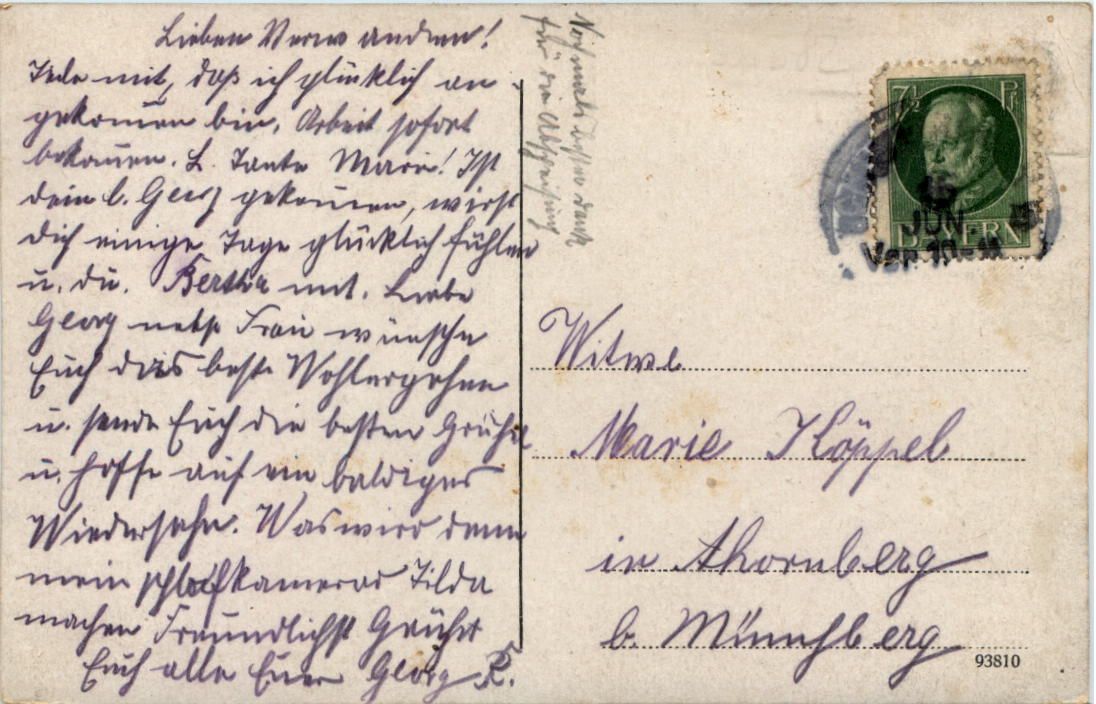 Lieben Verwandten!
Teile mit, daß ich glücklich an
gekom̅en bin, Arbeit sofort
bekom̅en. L. Tante Marie! Ist
dein l. Georg gekom̅en, wirst
dich einige Tage glücklich fühlen
u. du. Bertha mit. Liebe
Georg nebst Frau wünsche
Euch das beste Wohlergehen
u. sende Euch die besten Grüße
u. hoffe auf ein baldiges
Wiedersehn. Was wird denn
mein Schlafkamerad Tilda
machen Freundlichst Grüßet
Euch alle Euer Georg K.
Nochmals besten Dank
für die Abspeisung
7½ Pf
15
JUN.
Vor. 10-11
BAYERN
Witwe
Marie Köppel
in Ahornberg
b. Münchberg
93810